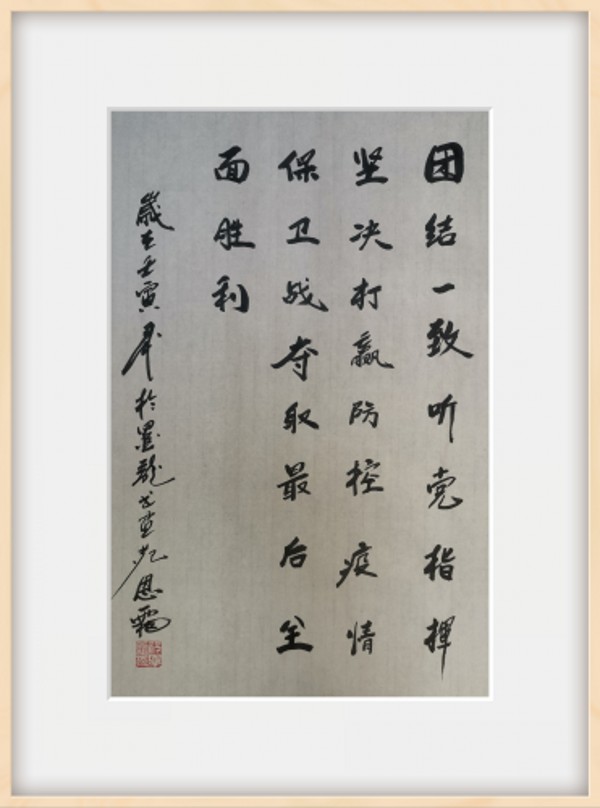 团结一致听党指挥
坚决打赢防控疫情
保卫战夺取最后全
面胜利
歲在壬寅年於墨龍书画苑恩霜